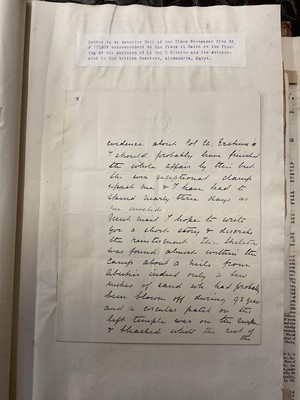 Letter to Mr Moberley Bell of the Times Newspaper from Mr
correspondent to the Times in Cairo re the find-
ing of the skeleton of Lt Col C Erskine and the reinter-
ment in the British Cemetery, Alexandria, Egypt.
evidence about Col Ch. Erskine's
I should probably have finished
the whole affair by then but
the very exceptional damp
upset me & I have had to
spend nearly three days as
an invalid.
Next mail I hope to write
you a short story & describe
the reinterment. The skeleton
was found almost within the
Camp about a mile from
Aboukir indeed only a few
inches of sand wh had probably
been blown off during 92 years
and a circular patch on the
left temple was on the surface
& bleached white the rest of
the